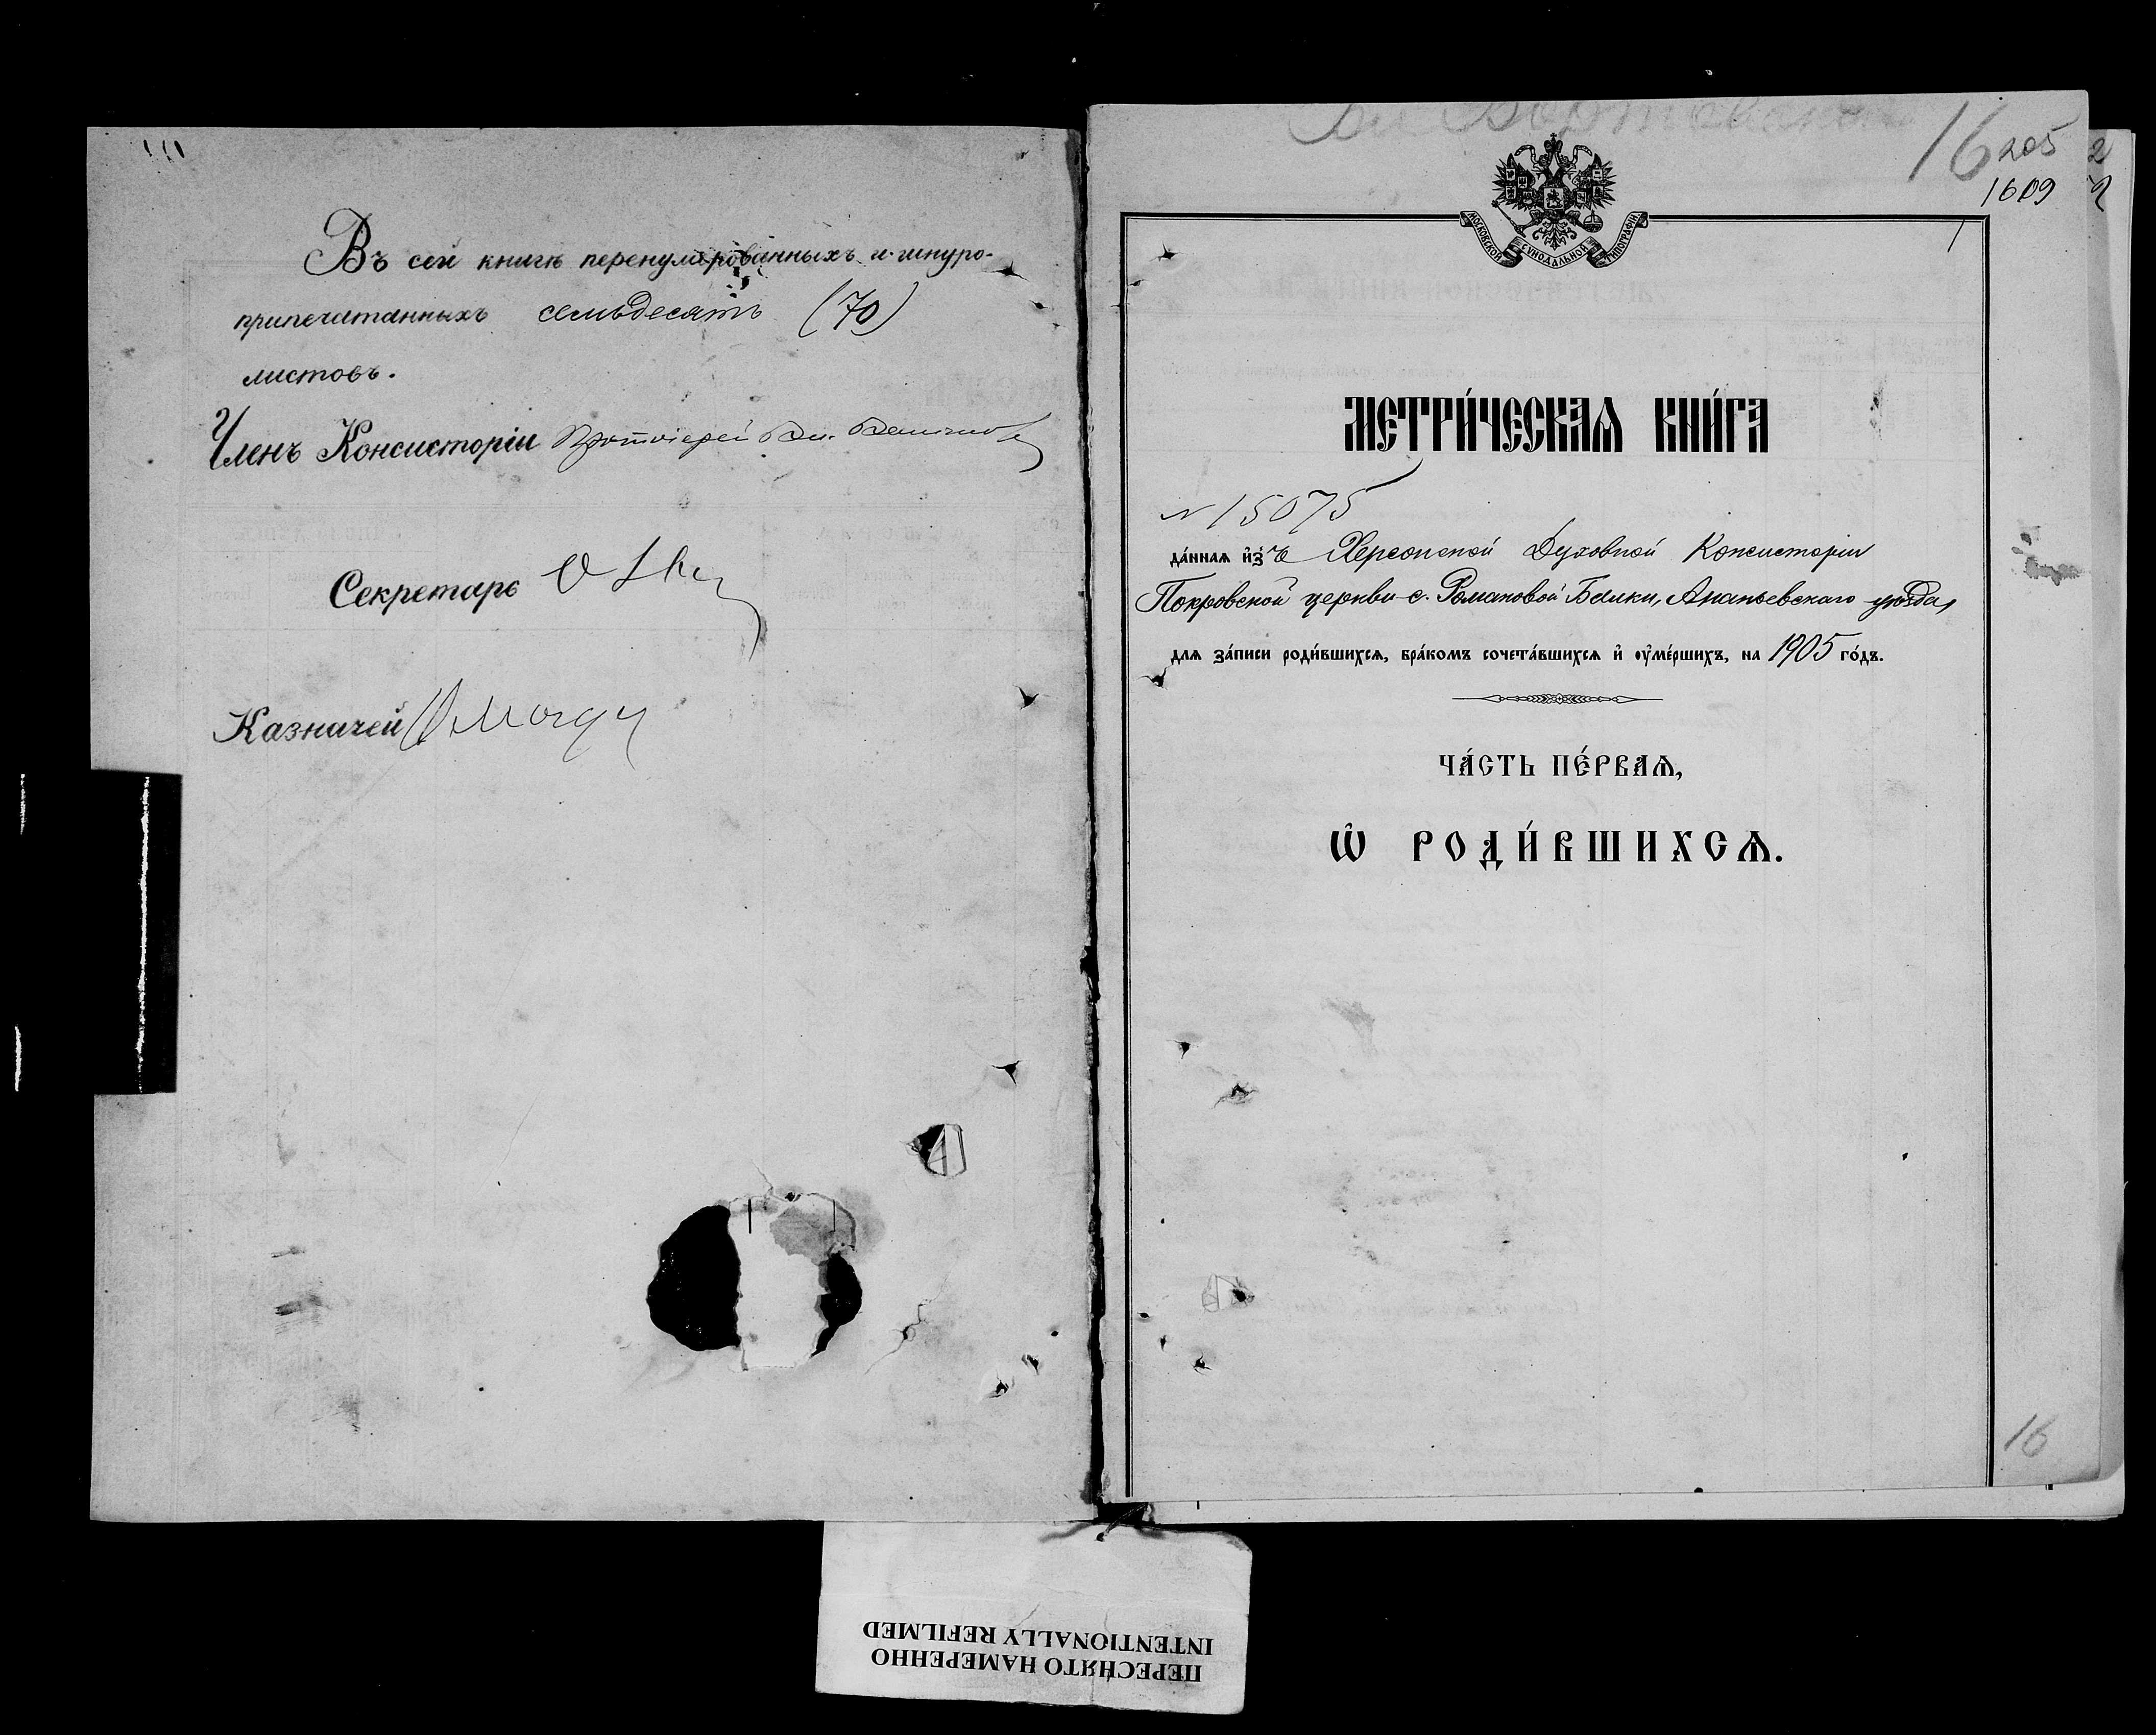 Въ сей книгѣ перенумерованныхъ и шнуро-
припечатанныхъ семьдесятъ (70)
листовъ.
Членъ Консисторіи Протоіерей Вл.
Секретарь
Казначей
16 205
1609
1
МОСКОВСКОЙ СѴНОДАЛЬНОЙ ТИПОГРАФІИ
МЕТРИ́ЧЕСКАѦ КНИ́ГА
N 15075
да́нная и҆зъ Херсонской Духовной Консисторіи
Покровской церкви с. Романовой Балки, Ананьевскаго уѣзда,
для за́писи роди́вшихся, бра́комъ сочета́вшихся и҆ оу҆ме́ршихъ, на 1905 го́дъ.
ЧА́СТЬ ПЕ́РВАѦ,
Ѽ РОДИ́ВШИХСѦ.
16
ПЕРЕСНЯТО НАМЕРЕННО
INTENTIONALLY REFILMED